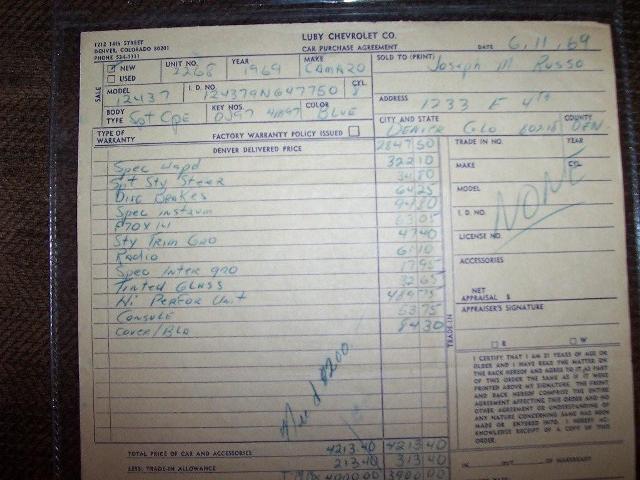 LUBY CHEVROLET CO.
1212 14th STREET
DENVER, COLORADO 80201
PHONE 534-1111
CAR PURCHASE AGREEMENT
DATE 6.11.69
NEW
USED
UNIT NO. 2268
YEAR 1969
MAKE CAMARO
SOLD TO (PRINT) Joseph M Russo
SALE
MODEL 12437
I.D. NO. 124379N647750
CYL 8
ADDRESS 1233 E 4th
BODY TYPE Spt Cpe
KEY NOS.
COLOR Blue
CITY AND STATE Denver Colo
COUNTY DEN
TYPE OF WARRANTY
FACTORY WARRANTY POLICY ISSUED
DENVER DELIVERED PRICE 2847 50
Spec Wapd 322 10
Spt Sty Steer 34 80
Disc Brakes 64 25
Spec instrum 94 80
F70x14 63 05
Sty Trim Gro 47 40
Radio 61 10
Spec Inter gro 17 95
Tinted Glass 32 65
Hi Perfor Unit
Console 53 75
Cover/Bla 84 30
TRADE IN NO. YEAR
MAKE CYL
MODEL
I. D. NO.
NONE
LICENSE NO.
ACCESSORIES
NET APPRAISAL $
APPRAISER'S SIGNATURE
TRADE-IN
R W
$200.
I CERTIFY THAT I AM 21 YEARS OF AGE OR
OLDER AND I HAVE READ THE MATTER ON
THE BACK HEREOF AND AGREE TO IT AS PART
OF THIS ORDER THE SAME AS IF IT WERE
PRINTED ABOVE MY SIGNATURE. THE FRONT
AND BACK HEREOF COMPRISE THE ENTIRE
AGREEMENT AFFECTING THIS ORDER AND NO
OTHER AGREEMENT OR UNDERSTANDING OF
ANY NATURE CONCERNING SAME HAS BEEN
MADE OR ENTERED INTO. I HEREBY AC-
KNOWLEDGE RECEIPT OF A COPY OF THIS
ORDER.
TOTAL PRICE OF CAR AND ACCESSORIES 4213.40 4213.40
LESS: TRADE-IN ALLOWANCE 213.40 313.40
4000.00 3900.00